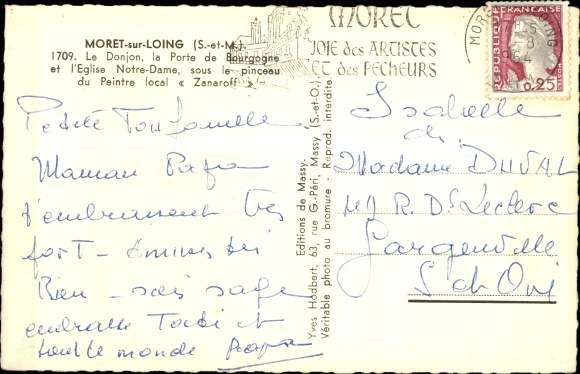 MORET-sur-LOING (S.-et-M.)
1709. Le Donjon, la Porte de Bourgogne
et l'Eglise Notre-Dame, sous le pinceau
du Peintre local « Zanaroff ».
MORET
JOIE des ARTISTES
ET des PECHEURS
REPUBLIQUE FRANÇAISE
0,25
1964
Petite
Maman Papa
t'embrassent très
fort - Amuses toi
Bien - sois sage
embrasse et
tout le monde Papa
Editions de Massy.
Yves Hodbert, 63, rue G.-Péri, Massy (S.-et-O.)
Véritable photo au bromure - Reprod. interdite.
Isabelle
Madame DUVAL
R. Dr Leclerc
Gargenville
S et Oise